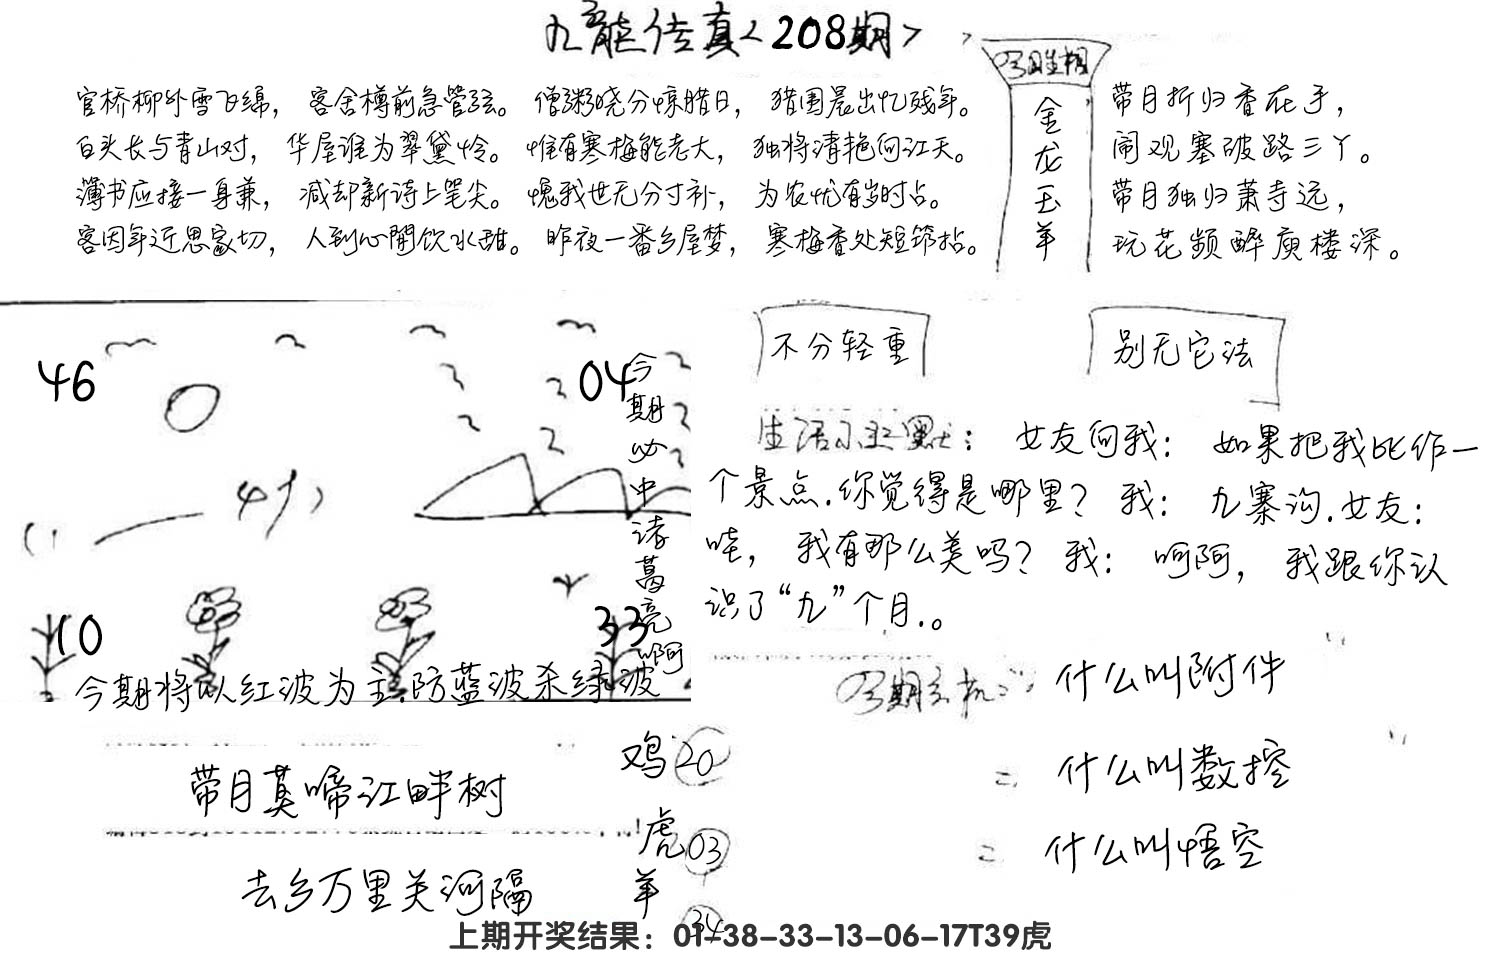 九龍传真<208期>
官桥柳外雪飞绵， 客舍樽前急管弦。 僧粥晓分惊腊日， 猎围晨出忆残年。
白头长与青山对， 华屋谁为翠黛怜。 惟有寒梅能老大， 独将清艳向江天。
薄书应接一身兼， 减却新诗上笔尖。 愧我世无分寸补， 为农忧有岁时占。
客因年近思家切， 人到心閒饮水甜。 昨夜一番乡屋梦， 寒梅香处短筇拈。
金龙玉羊
带月折归香在手，
闹观塞破路三丫。
带月独归萧寺远，
玩花频醉庾楼深。
不分轻重
别无它法
46
04
10
33
今期必中诸葛亮啊
今期将以红波为主.防蓝波杀绿波
生活小幽默： 女友问我： 如果把我比作一
个景点.你觉得是哪里？ 我： 九寨沟.女友：
哇， 我有那么美吗？ 我： 呵呵， 我跟你认
识了“九”个月.。
什么叫附件
什么叫数控
什么叫悟空
带月莫啼江畔树
去乡万里关河隔
鸡 20
虎 03
羊 34
上期开奖结果：01-38-33-13-06-17T39虎